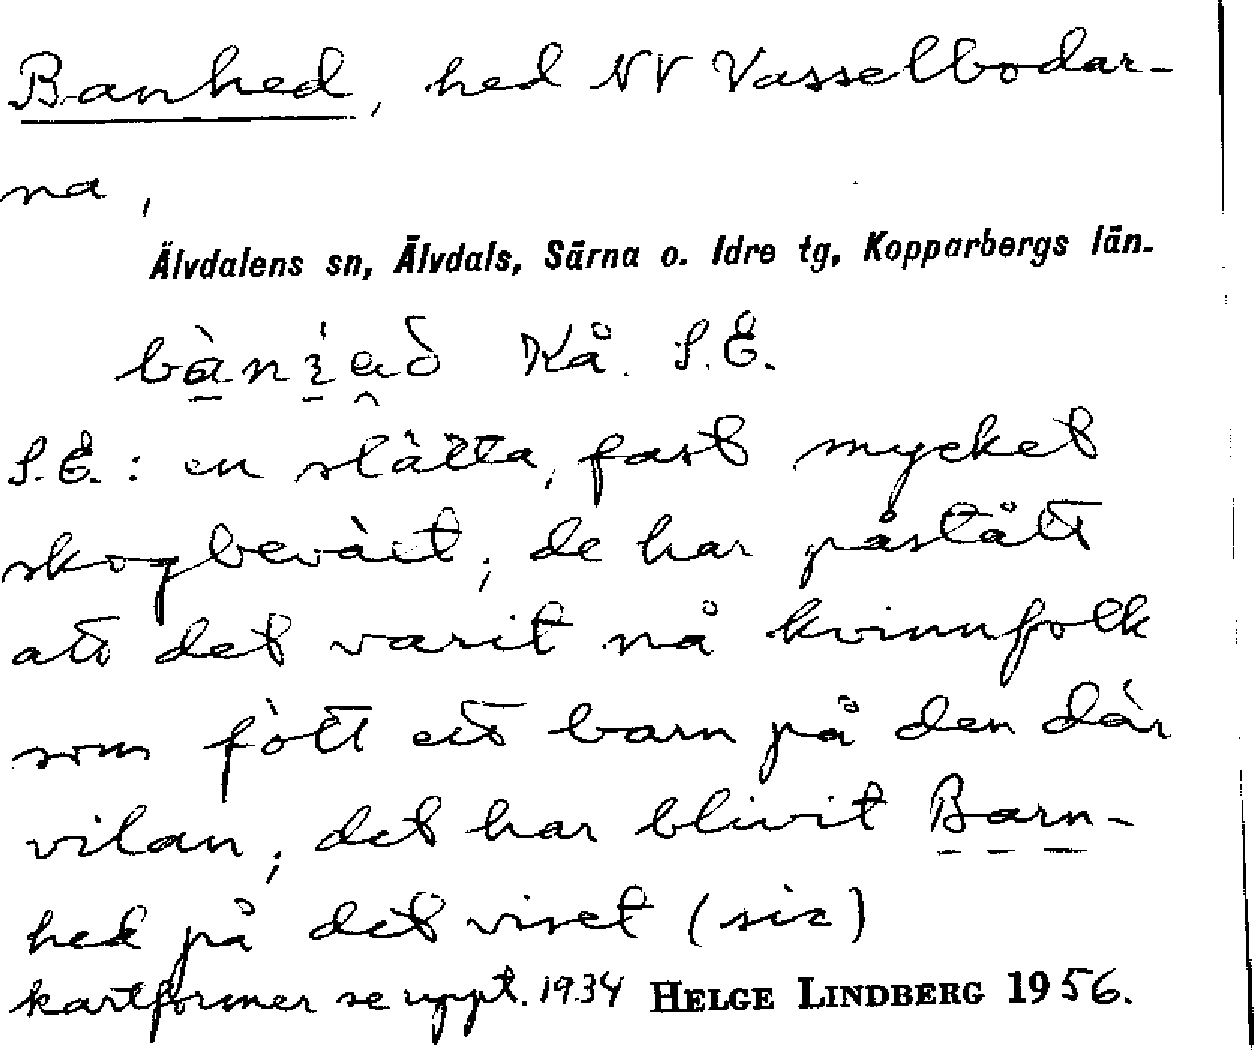 Banhed, hed NV Vasselbodar-
na,
Älvdalens sn, Älvdals, Särna o. Idre tg, Kopparbergs län.
Kå. S.E.
S.E.: en slätta, fast mycket
skogbeväxt; de har påstått
att det varit nå kvinnfolk
som fött ett barn på den där
vilan; det har blivit Barn-
hed på det viset (sic)
kartformer se uppt. 1934 HELGE LINDBERG 1956.